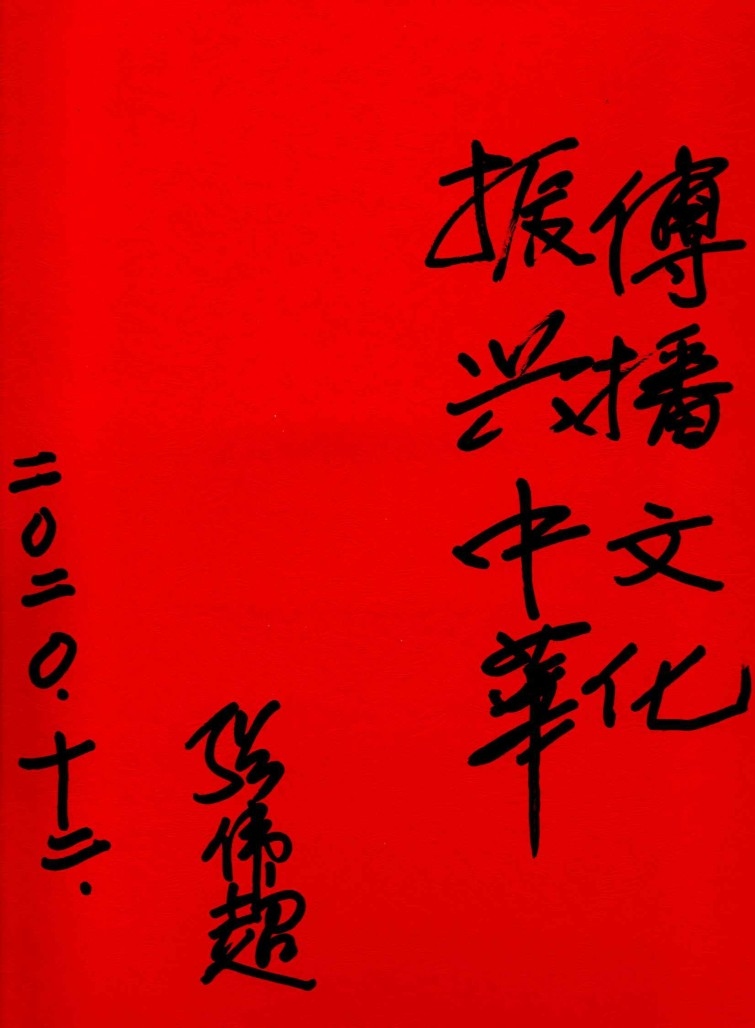 傳播文化
振兴中華
张伟超
二〇二〇.十二.